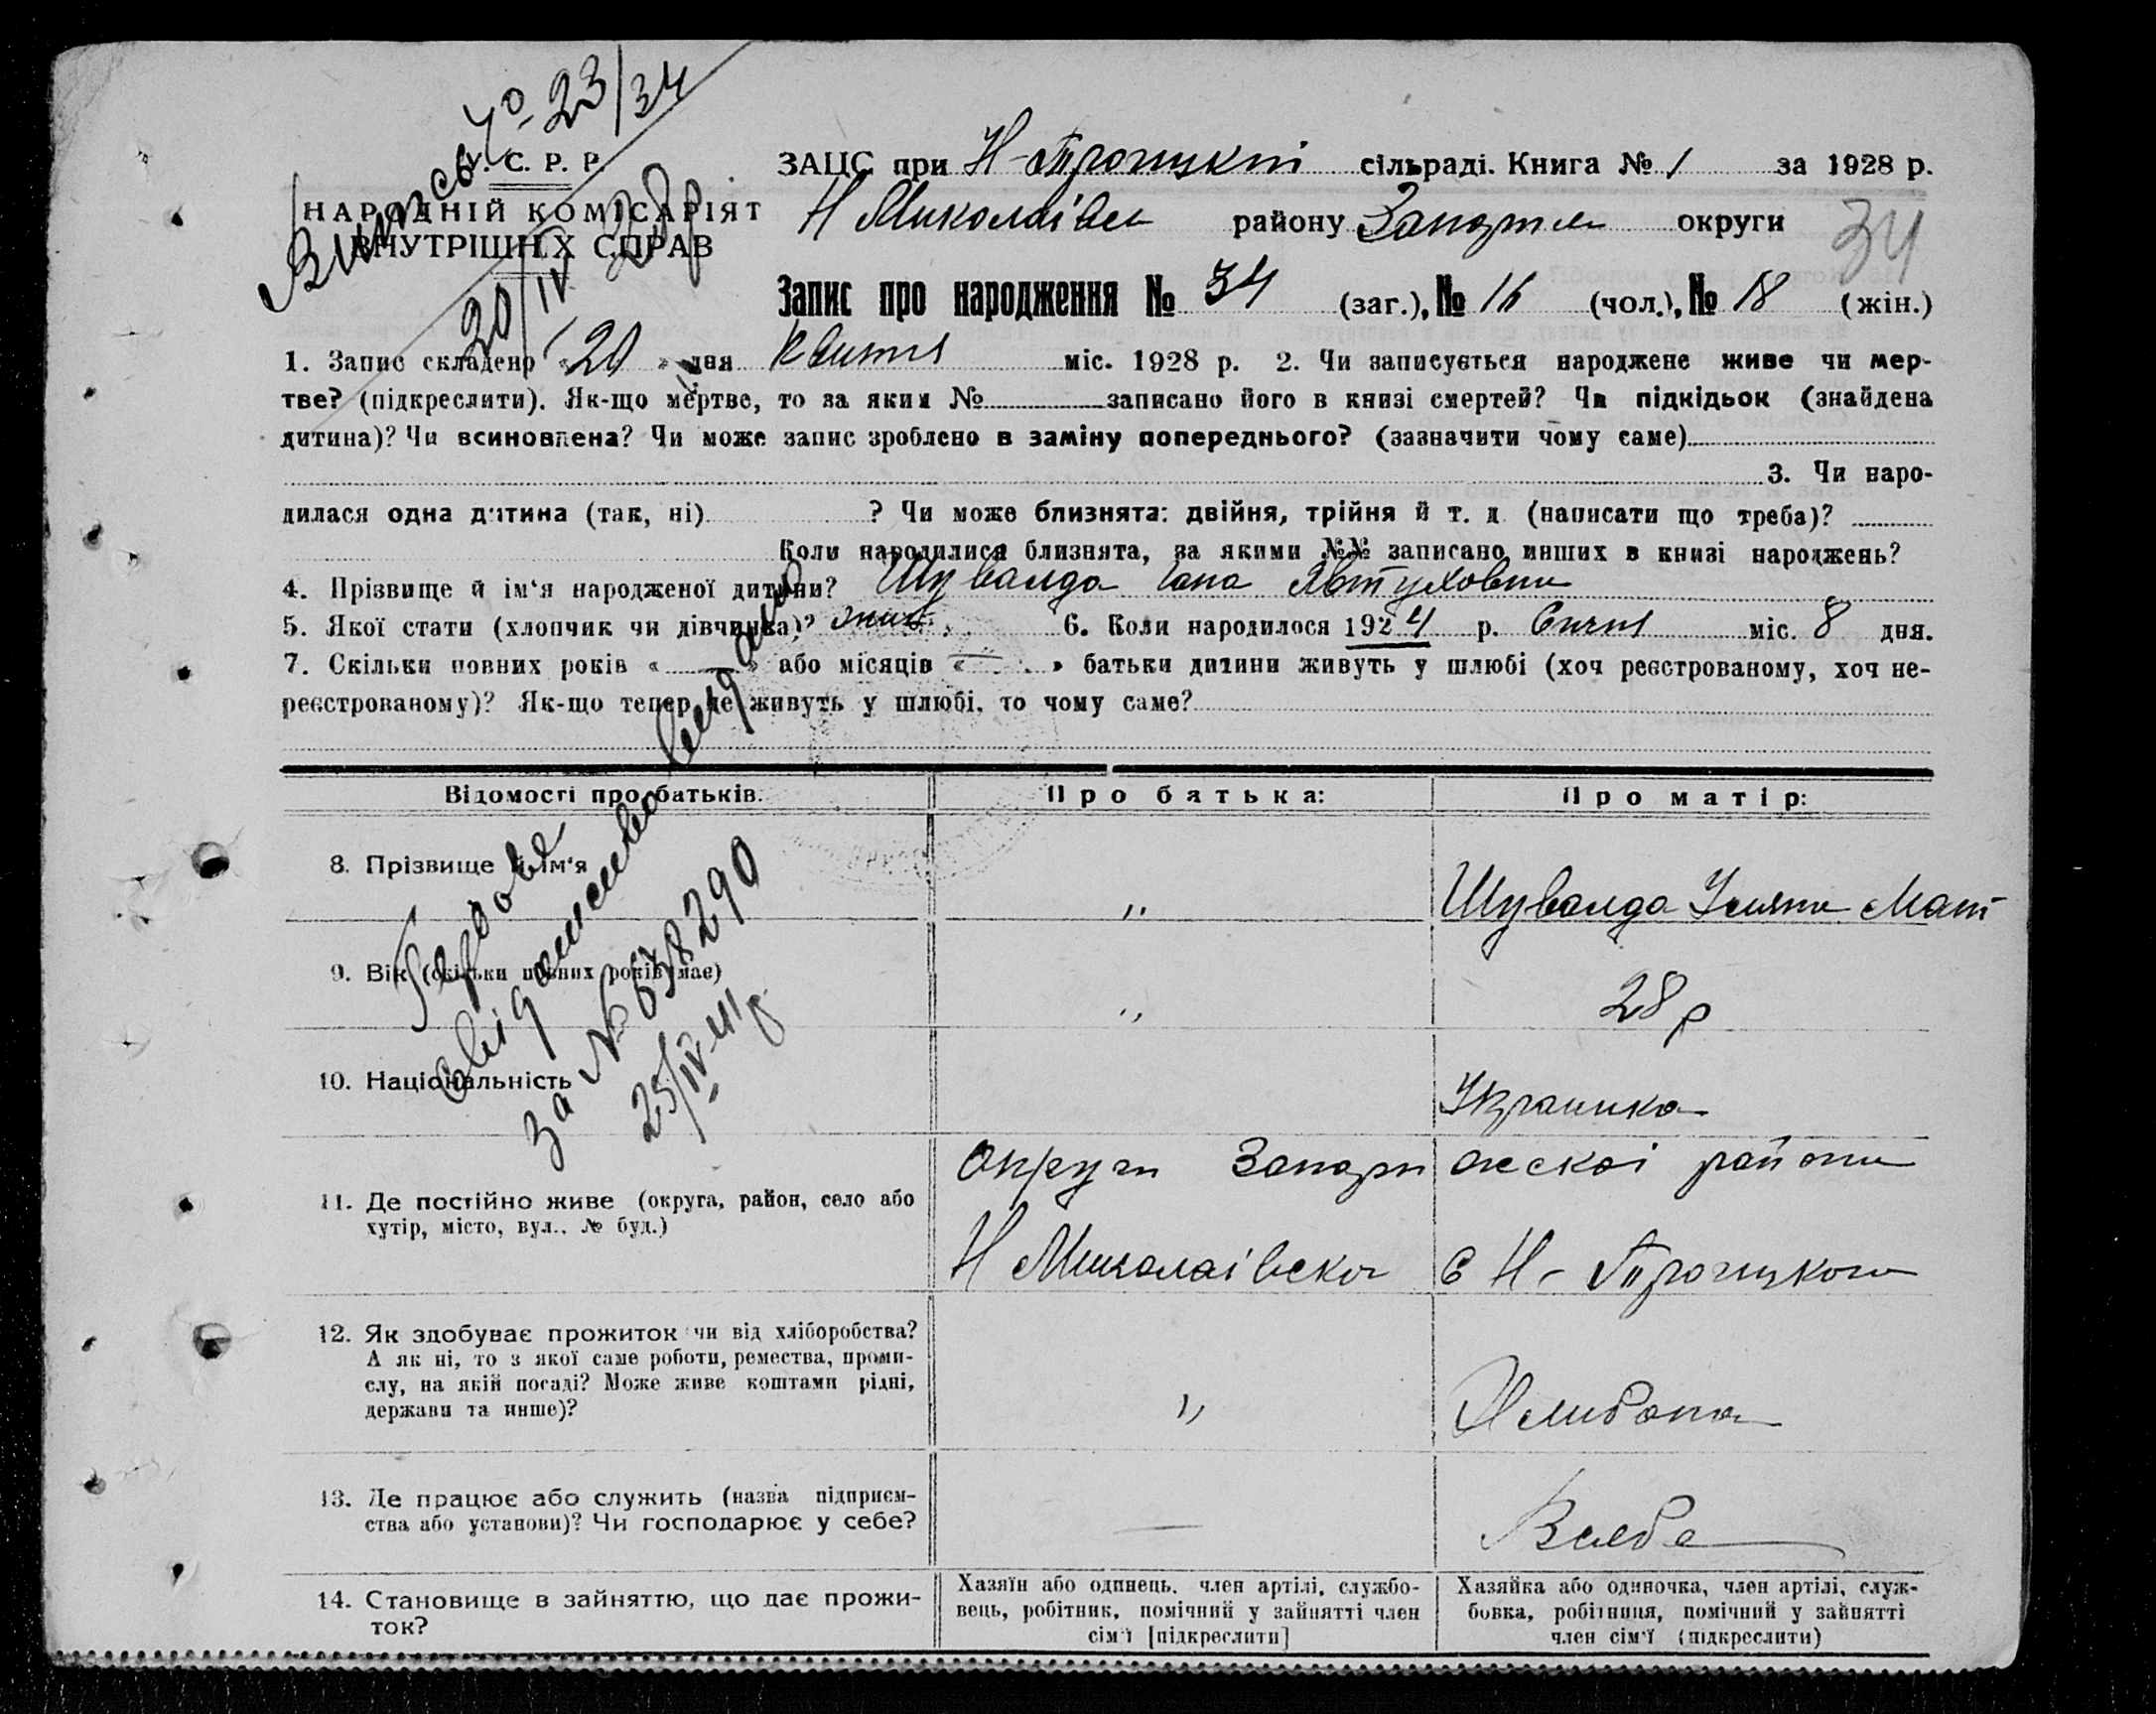 Виписъ № 23/34
20/IV 28р.
У. С. Р. Р.
НАРОДНІЙ КОМІСАРІЯТ
ВНУТРІШНІХ СПРАВ
ЗАЦС при Н-Троицкій сільраді. Книга № 1 за 1928 р.
Н Миколаівск району Запоріж округи
34
Запис про народження № 34 (заг.), № 16 (чол.), № 18 (жін.)
1. Запис складено «20» дня Квітня міс. 1928 р. 2. Чи записується народжене живе чи мер-
тве? (підкреслити). Як-що мертве, то за яким № записано його в книзі смертей? Чи підкідьок (знайдена
дитина)? Чи всиновлена? Чи може запис зроблено в заміну попереднього? (зазначити чому саме)
3. Чи наро-
дилася одна дитина (так, ні) ? Чи може близнята: двійня, трійня й т. д. (написати що треба)?
Коли народилися близнята, за якими №№ записано инших в книзі народжень?
4. Прізвище й ім‘я народженої дитини? Шувалда Явтуховна
5. Якої стати (хлопчик чи дівчинка)? жин. 6. Коли народилося 1924 р. Січня міс. 8 дня.
7. Скільки повних років «—» або місяців «—» батьки дитини живуть у шлюбі (хоч реєстрованому, хоч не-
реєстрованому)? Як-що тепер не живуть у шлюбі, то чому саме?
Відомості про батьків. Про батька: Про матір:
8. Прізвище й ім‘я „ Шувалда Мат
9. Вік (скільки повних років має) „ 28 р
10. Національність Украинка
11. Де постійно живе (округа, район, село або
хутір, місто, вул., № буд.)
Округи Запоріжскоі района
Н Миколаівскаг С Н-Троицкого
12. Як здобуває прожиток чи від хліборобства?
А як ні, то з якої саме роботи, ремества, проми-
слу, на якій посаді? Може живе коштами рідні,
держави та инше)?
„ Хлибопа
13. Де працює або служить (назва підприєм-
ства або установи)? Чи господарює у себе?
— Всебе
14. Становище в зайняттю, що дає прожи-
ток?
Хазяїн або одинець, член артілі, службо-
вець, робітник, помічний у зайнятті член
сім‘ї [підкреслити]
Хазяйка або одиночка, член артілі, служ-
бовка, робітниця, помічний у зайнятті
член сім‘ї (підкреслити)
свідоцтво
за № 638290
25/IV-41 р